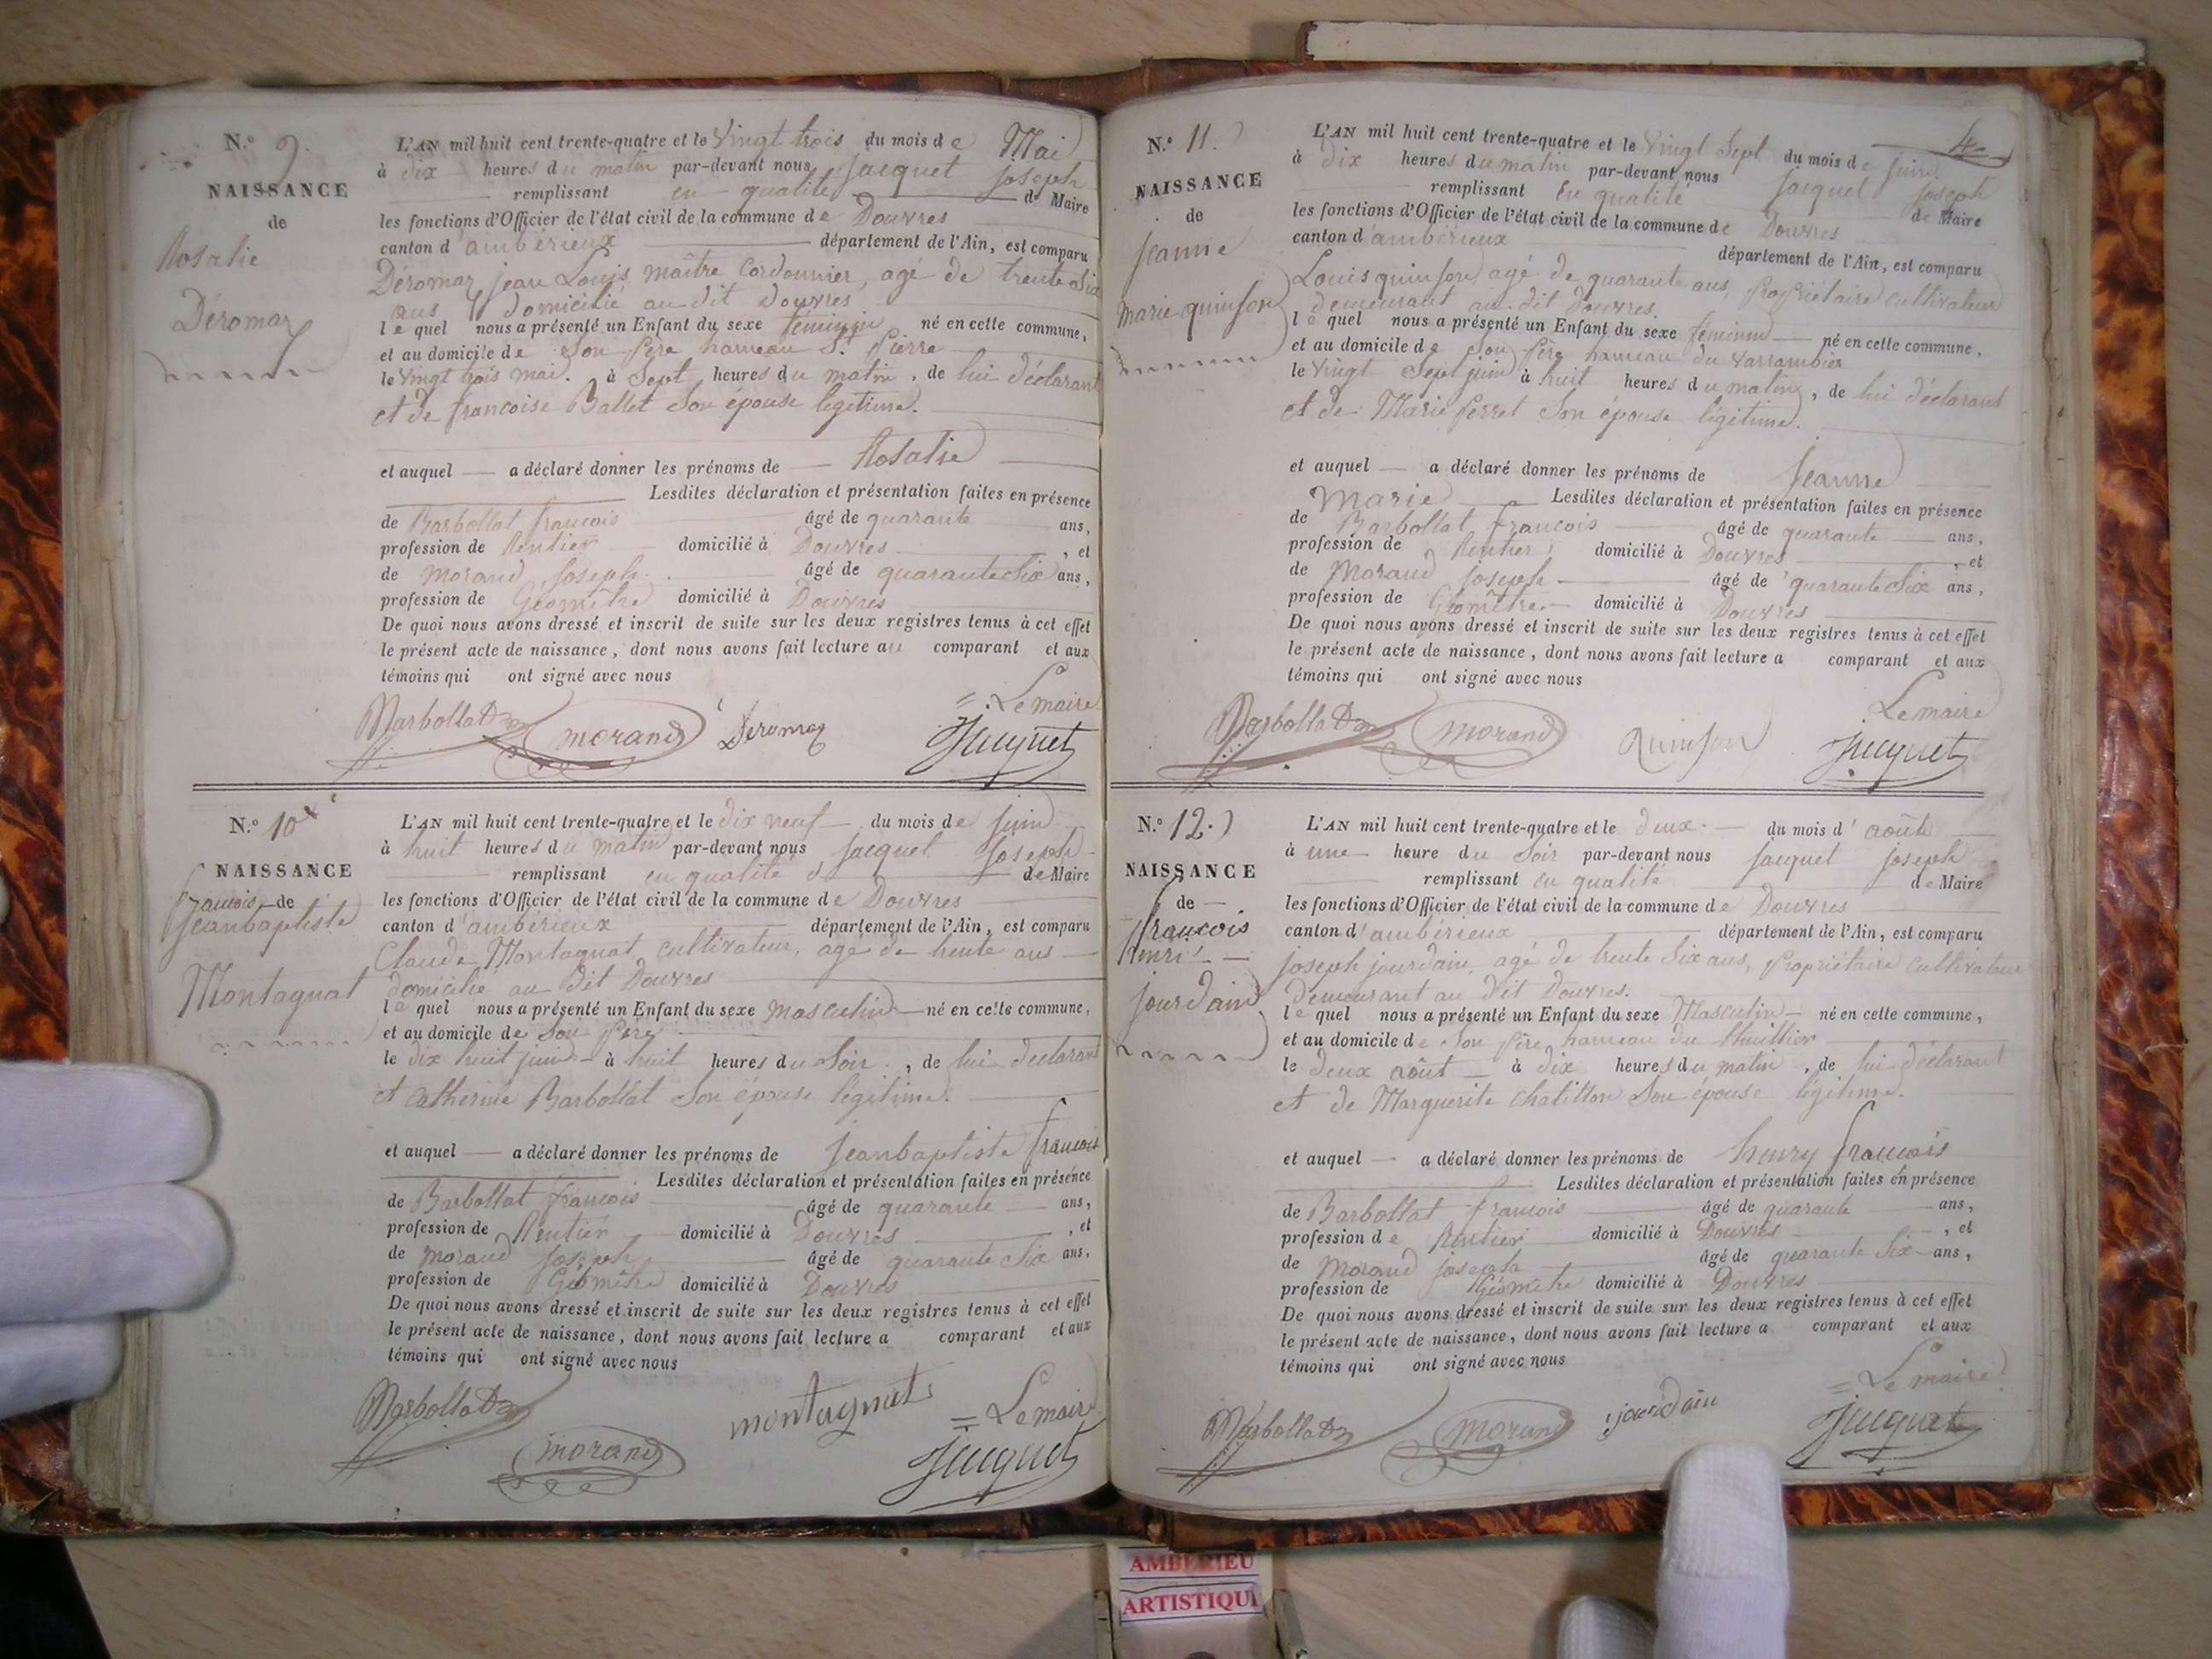 N.o 9.
NAISSANCE
de
Rosalie
Déromas
L'AN mil huit cent trente-quatre et le vingt trois du mois de Mai
à dix heures du matin par-devant nous jacquet joseph
remplissant en qualité de Maire
les fonctions d'Officier de l'état civil de la commune de Douvres
canton d'ambérieux département de l'Ain, est comparu
Déromas jean Louis maître Cordonnier, agé de trente six
ans domicilié au dit Douvres
lequel nous a présenté un Enfant du sexe féminin né en cette commune,
et au domicile de Son père hameau St. Pierre
le vingt trois mai. à Sept heures du matin, de lui déclarant
et de francoise Ballet Son épouse légitime.
et auquel a déclaré donner les prénoms de Rosalie
Lesdites déclaration et présentation faites en présence
de Barbollat francois âgé de quarante ans,
profession de Rentier domicilié à Douvres, et
de morand joseph. âgé de quarante Six ans,
profession de Géomêtre domicilié à Douvres
De quoi nous avons dressé et inscrit de suite sur les deux registres tenus à cet effet
le présent acte de naissance, dont nous avons fait lecture au comparant et aux
témoins qui ont signé avec nous
= Le maire
Barbollat morand Déromas Jacquet
N.o 10
NAISSANCE
francois de
jeanbaptiste
Montagnat
L'AN mil huit cent trente-quatre et le dix neuf du mois de juin
à huit heures du matin par-devant nous jacquet joseph
remplissant en qualité de Maire
les fonctions d'Officier de l'état civil de la commune de Douvres
canton d'ambérieux département de l'Ain, est comparu
Claude Montagnat cultivateur, agé de trente ans
domicilié au dit Douvres
lequel nous a présenté un Enfant du sexe masculin né en cette commune,
et au domicile de Son père
le dix huit juin à huit heures du Soir, de lui déclarant
et catherine Barbollat Son épouse légitime.
et auquel a déclaré donner les prénoms de jeanbaptiste francois
Lesdites déclaration et présentation faites en présence
de Barbollat francois âgé de quarante ans,
profession de Rentier domicilié à Douvres, et
de morand joseph âgé de quarante Six ans,
profession de Géomêtre domicilié à Douvres
De quoi nous avons dressé et inscrit de suite sur les deux registres tenus à cet effet
le présent acte de naissance, dont nous avons fait lecture a comparant et aux
témoins qui ont signé avec nous
= Le maire
Barbollat morand montagnat Jacquet
4
N.o 11.
NAISSANCE
de
jeanne
marie quinson
L'AN mil huit cent trente-quatre et le vingt Sept du mois de juin
à dix heures du matin par-devant nous jacquet joseph
remplissant En qualité de Maire
les fonctions d'Officier de l'état civil de la commune de Douvres
canton d'ambérieux département de l'Ain, est comparu
Louis quinson, agé de quarante ans, propriétaire cultivateur
demeurant au dit Douvres.
lequel nous a présenté un Enfant du sexe féminin né en cette commune,
et au domicile de Son père hameau du
le vingt Sept juin à huit heures du matin, de lui déclarant
et de Marie perret Son épouse légitime.
et auquel a déclaré donner les prénoms de jeanne
Marie Lesdites déclaration et présentation faites en présence
de Barbollat francois âgé de quarante ans,
profession de Rentier domicilié à Douvres, et
de Morand joseph âgé de quarante Six ans,
profession de Géomêtre. domicilié à Douvres
De quoi nous avons dressé et inscrit de suite sur les deux registres tenus à cet effet
le présent acte de naissance, dont nous avons fait lecture a comparant et aux
témoins qui ont signé avec nous
Le maire
Barbollat morand quinson Jacquet
N.o 12.
NAISSANCE
de
francois
henri
jourdain
L'AN mil huit cent trente-quatre et le deux du mois d'août
à une heure du Soir par-devant nous jacquet joseph
remplissant en qualité de Maire
les fonctions d'Officier de l'état civil de la commune de Douvres
canton d'ambérieux département de l'Ain, est comparu
joseph jourdain, agé de trente Six ans, propriétaire cultivateur
demeurant au dit Douvres.
lequel nous a présenté un Enfant du sexe Masculin né en cette commune,
et au domicile de Son père hameau du
le deux août à dix heures du matin, de lui déclarant
et de Marguerite chatillon Son épouse légitime.
et auquel a déclaré donner les prénoms de henry francois
Lesdites déclaration et présentation faites en présence
de Barbollat francois âgé de quarante ans,
profession de Rentier domicilié à Douvres, et
de Morand joseph âgé de quarante Six ans,
profession de Géomêtre domicilié à Douvres
De quoi nous avons dressé et inscrit de suite sur les deux registres tenus à cet effet
le présent acte de naissance, dont nous avons fait lecture a comparant et aux
témoins qui ont signé avec nous
= Le maire
Barbollat morand jourdain Jacquet
AMBERIEU
ARTISTIQU